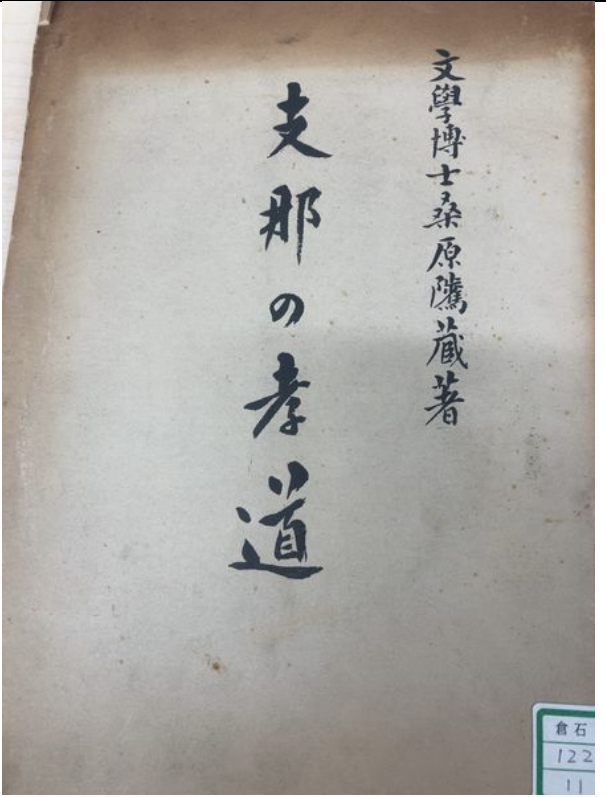 文學博士桑原隲蔵著
支那の孝道
倉石
122
11